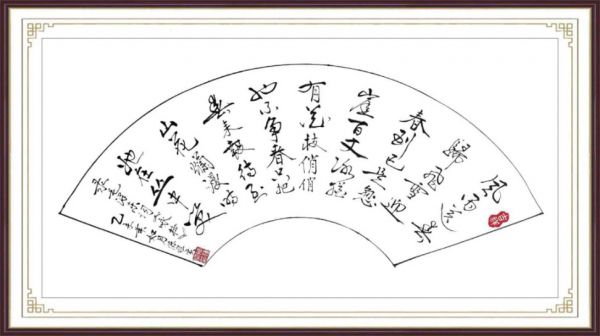 风雨送春
歸飛雪迎
春到已是悬
崖百丈冰犹
有花枝俏俏
也不争春只把
春来報待到
山花爛漫時
她在丛中笑